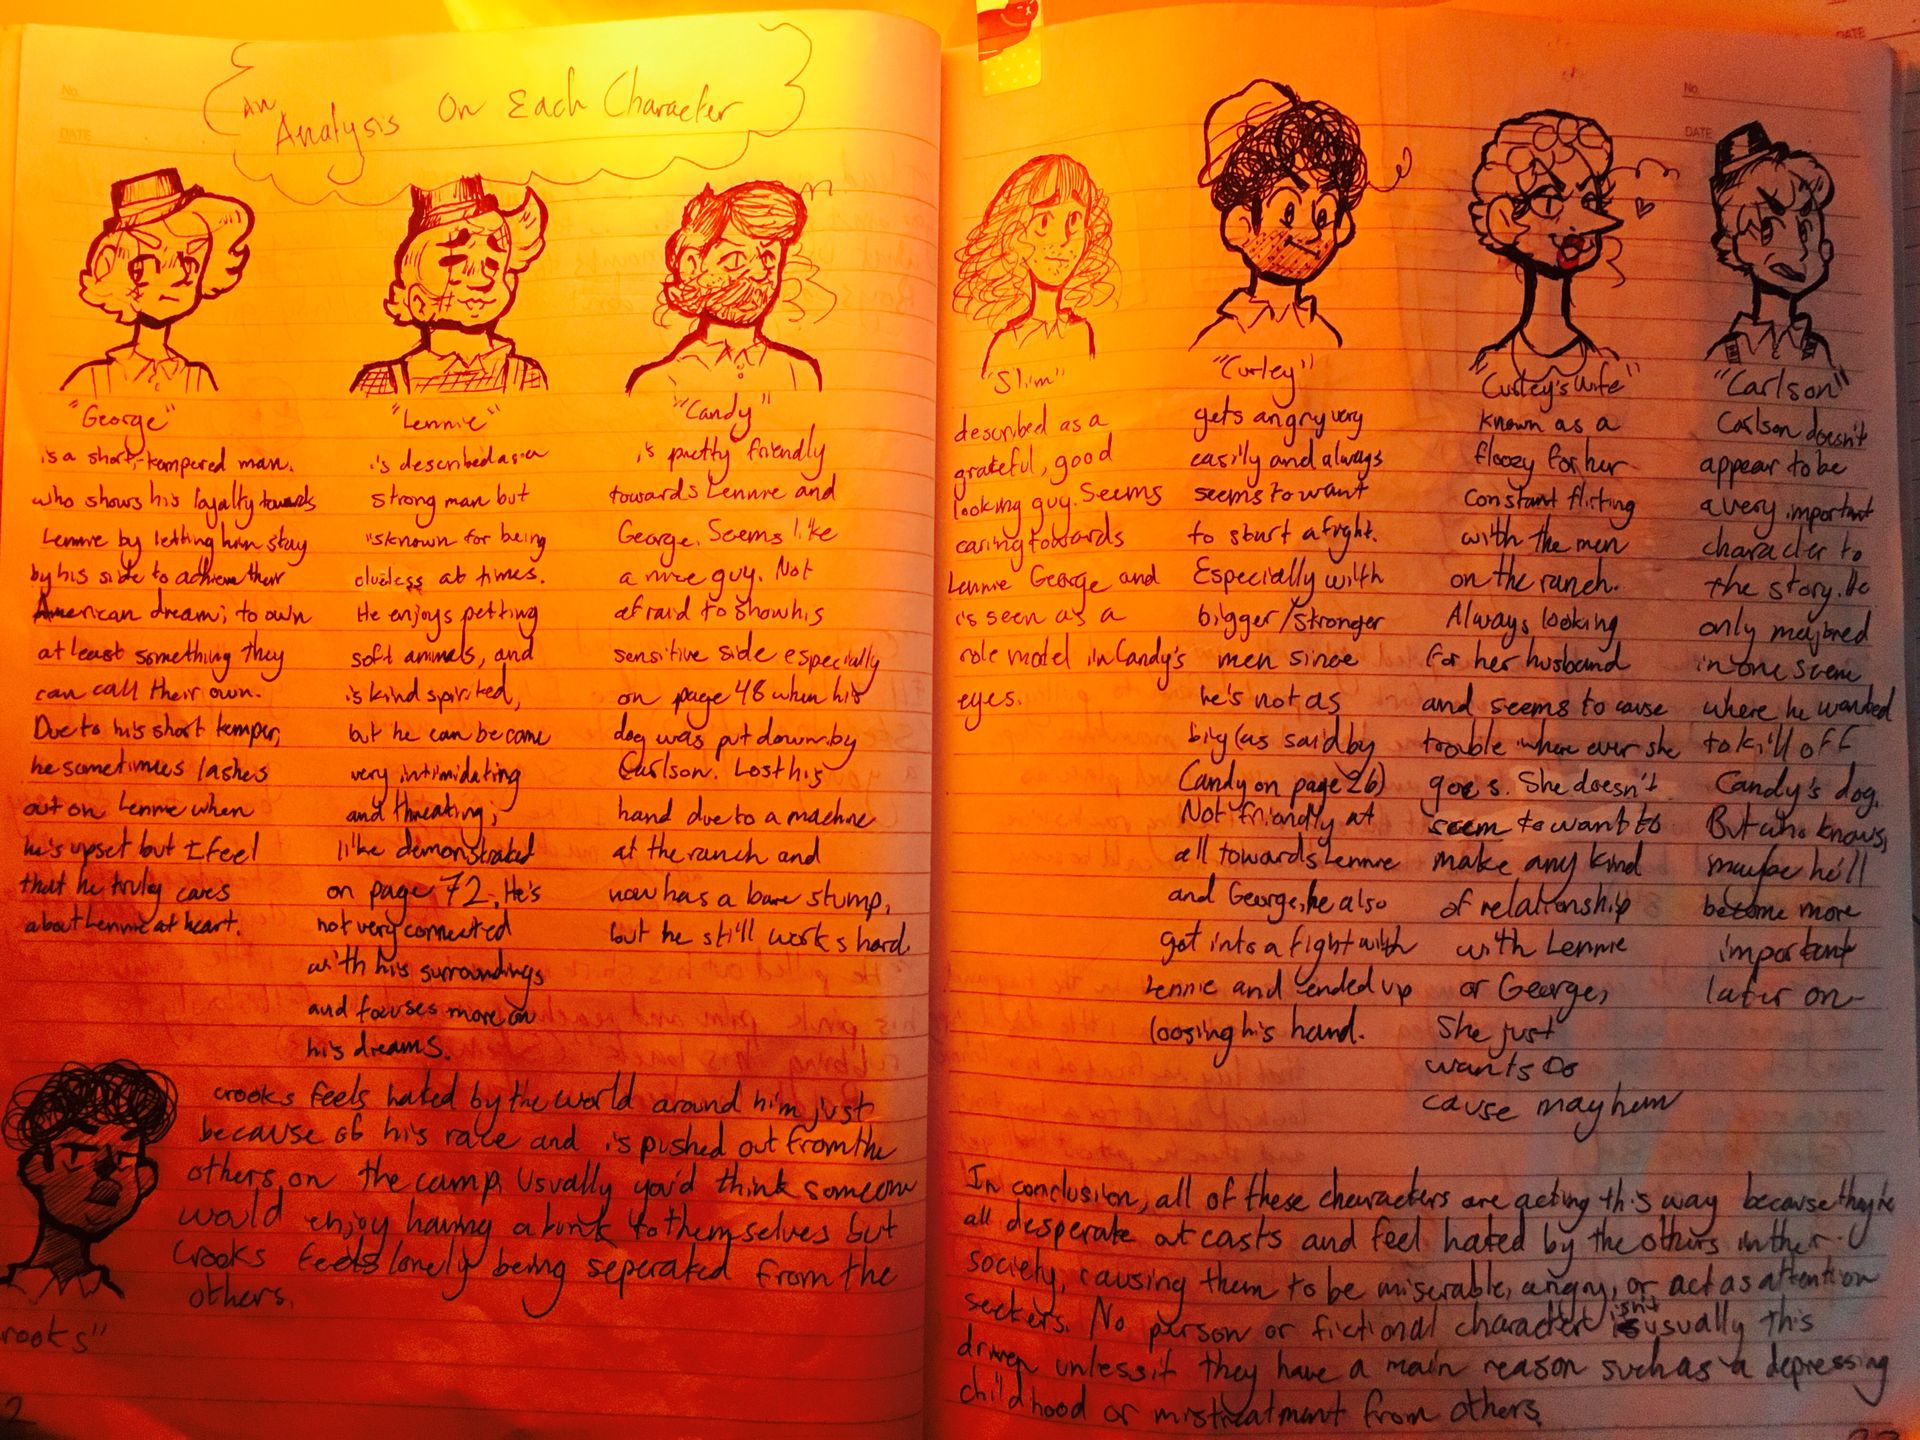 No.
DATE
An
Analysis On Each Character
"George"
is a short-tempered man.
who shows his loyalty towards
Lennie by letting him stay
by his side to achieve their
American dream; to own
at least something they
can call their own.
Due to his short temper,
he sometimes lashes
out on Lennie when
he's upset but I feel
that he truly cares
about Lennie at heart.
"Lennie"
is described as a
strong man but
is known for being
clueless at times.
He enjoys petting
soft animals, and
is kind spirited,
but he can become
very intimidating
and threating;
like demonstrated
on page 72. He's
not very connected
with his surroundings
and focuses more on
his dreams.
"Candy"
is pretty friendly
towards Lennie and
George. Seems like
a nice guy. Not
afraid to show his
sensitive side especially
on page 48 when his
dog was put down by
Carlson. Lost his
hand due to a machine
at the ranch and
now has a bare stump,
but he still works hard
crooks feels hated by the world around him just
because of his race and is pushed out from the
others on the camp. Usually you'd think someone
would enjoy having a bunk to themselves but
Crooks feels lonely being seperated from the
others.
rooks"
2
No.
DATE
DATE
"Slim"
described as a
grateful, good
looking guy. Seems
caring towards
Lennie George and
is seen as a
role model in Candy's
eyes.
"Curley"
gets angry very
easily and always
seems to want
to start a fight.
Especially with
bigger/stronger
men since
he's not as
big (as said by
Candy on page 26)
Not friendly at
all towards Lennie
and George, he also
got into a fight with
Lennie and ended up
loosing his hand.
"Curley's wife"
known as a
floozy for her
constant flirting
with the men
on the ranch.
Always looking
for her husband
and seems to cause
trouble where ever she
goes. She doesn't
seem to want to
make any kind
of relationship
with Lennie
or George,
She just
wants to
cause mayhem
"Carlson"
Carlson doesn't
appear to be
a very important
character to
the story. He
only majored
in one scene
where he wanted
to kill off
Candy's dog.
But who knows,
maybe he'll
become more
important
later on-
In conclusion, all of these characters are acting this way because they're
all desperate outcasts and feel hated by the others in their
society, causing them to be miserable, angry, or act as attention
seekers. No person or fictional character isn't usually this
driven unless if they have a main reason such as a depressing
childhood or mistreatment from others.